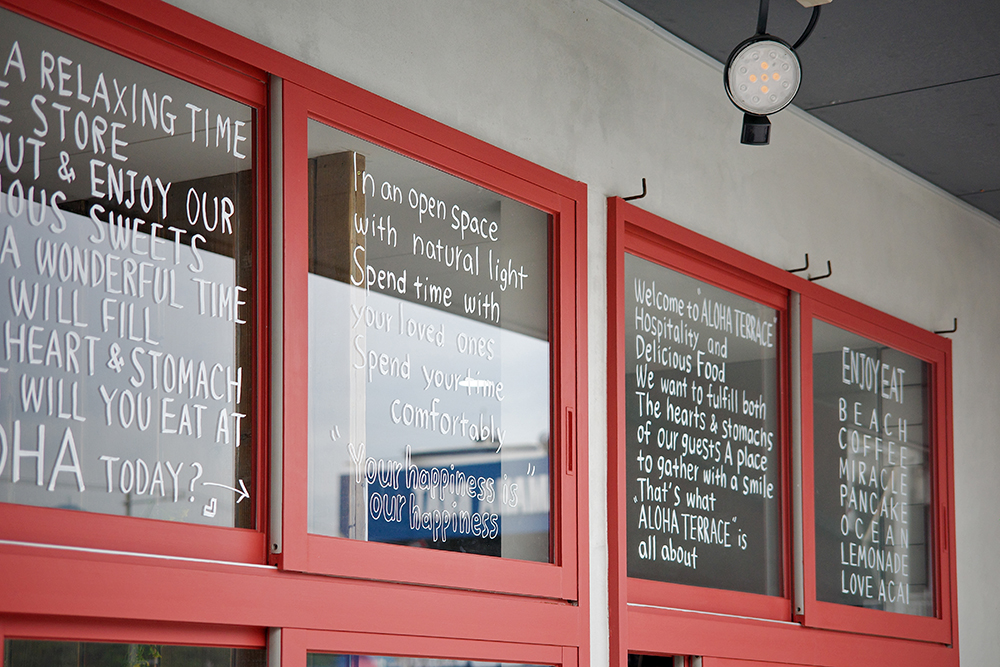 A RELAXING TIME
STORE
& ENJOY OUR
SWEETS
A WONDERFUL TIME
WILL FILL
HEART & STOMACH
WILL YOU EAT AT
TODAY?
In an open space
with natural light
Spend time with
your loved ones
Spend your time
comfortably
"Your happiness is"
our happiness
Welcome to "ALOHA TERRACE"
Hospitality and
Delicious Food
We want to fulfill both
The hearts & stomachs
of our guests A place
to gather with a smile
That's what
"ALOHA TERRACE" is
all about
ENJOY EAT
BEACH
COFFEE
MIRACLE
PANCAKE
OCEAN
LEMONADE
LOVE ACAI